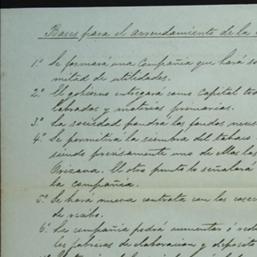 Bases para el arrendamiento de la
1.° Se formará una Compañia que hará
mitad de utilidades.
2.° El gobierno entregará como capital
labrados y materias primarias.
3.° La sociedad pondrá los fondos
4.° Se permitirá la siembra del tabaco
siendo precisamente uno de
Orizava. El otro punto lo señalará
la compañia.
5.° Se hará nueva contrata con los
de
6.° La compañia podrá aumentar ó
las fabricas de elaboracion y